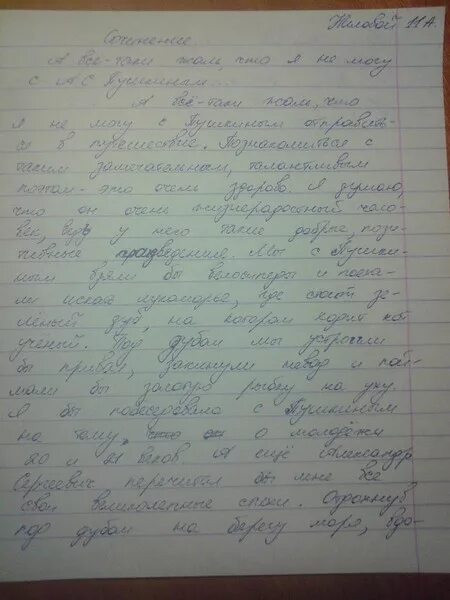 Жиловой 11 А.
Сочинение
А всё-таки жаль, что я не могу
с А С Пушкиным...
А всё-таки жаль, что
я не могу с Пушкиным отправить-
ся в путешествие. Познакомиться с
таким замечательным, талантливым
поэтом - это очень здорово. Я думаю,
что он очень жизнерадостный чело-
век, ведь у него такие добрые, пози-
тивные произведения. Мы с Пушки-
ным взяли бы велосипеды и поеха-
ли искать лукоморье, где стоит зе-
лёный дуб, на котором ходит кот
учёный. Под дубом мы устроили
бы привал, закинули невод и пой-
мали бы золотую рыбку на уху.
Я бы побеседовала с Пушкиным
на тему, о молодёжи
20 и 21 веков. А ещё Александр
Сергеевич перечитал бы мне все
свои великолепные стихи. Отдохнув
под дубом на берегу моря, вдо-